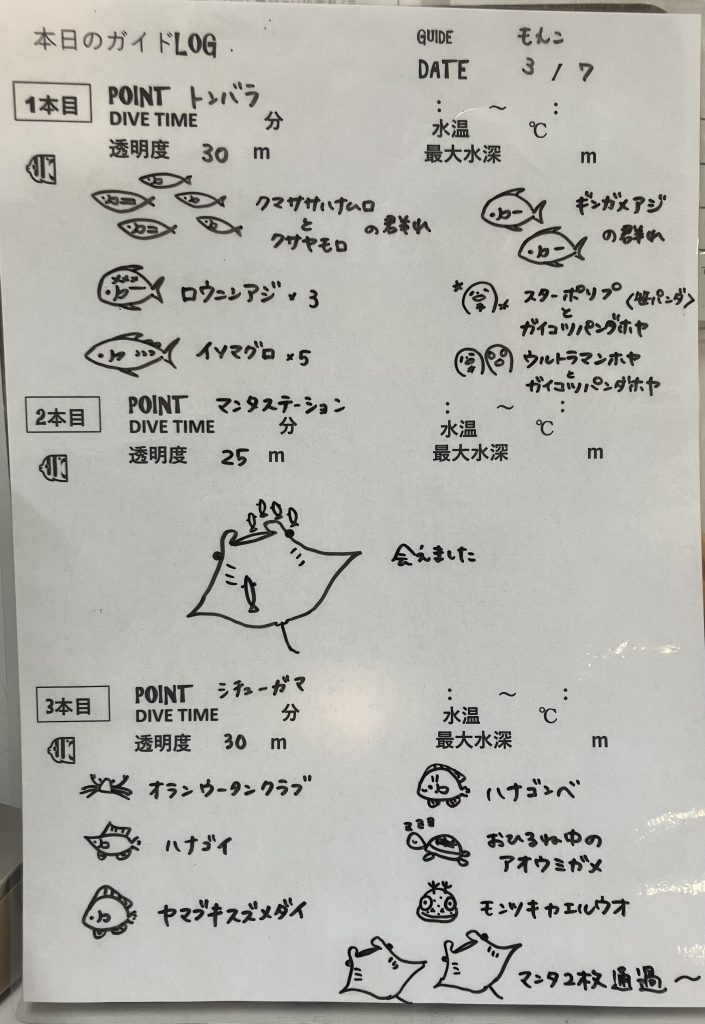 本日のガイドLOG
GUIDE もんこ
DATE 3/7
1本目 POINT トンバラ
DIVE TIME 分
: 〜 :
透明度 30 m
水温 ℃
最大水深 m
クマササハナムロ
と
クサヤモロ
の群れ
ギンガメアジ
の群れ
ロウニンアジ×3
スターポリプ〈笹パンダ〉
と
ガイコツパンダホヤ
イソマグロ×5
ウルトラマンホヤ
と
ガイコツパンダホヤ
2本目 POINT マンタステーション
DIVE TIME 分
: 〜 :
透明度 25 m
水温 ℃
最大水深 m
会えました
3本目 POINT シチューガマ
DIVE TIME 分
: 〜 :
透明度 30 m
水温 ℃
最大水深 m
オランウータンクラブ
ハナゴンベ
ハナゴイ
zzz
おひるね中の
アオウミガメ
ヤマブキスズメダイ
モンツキカエルウオ
マンタ2枚通過〜